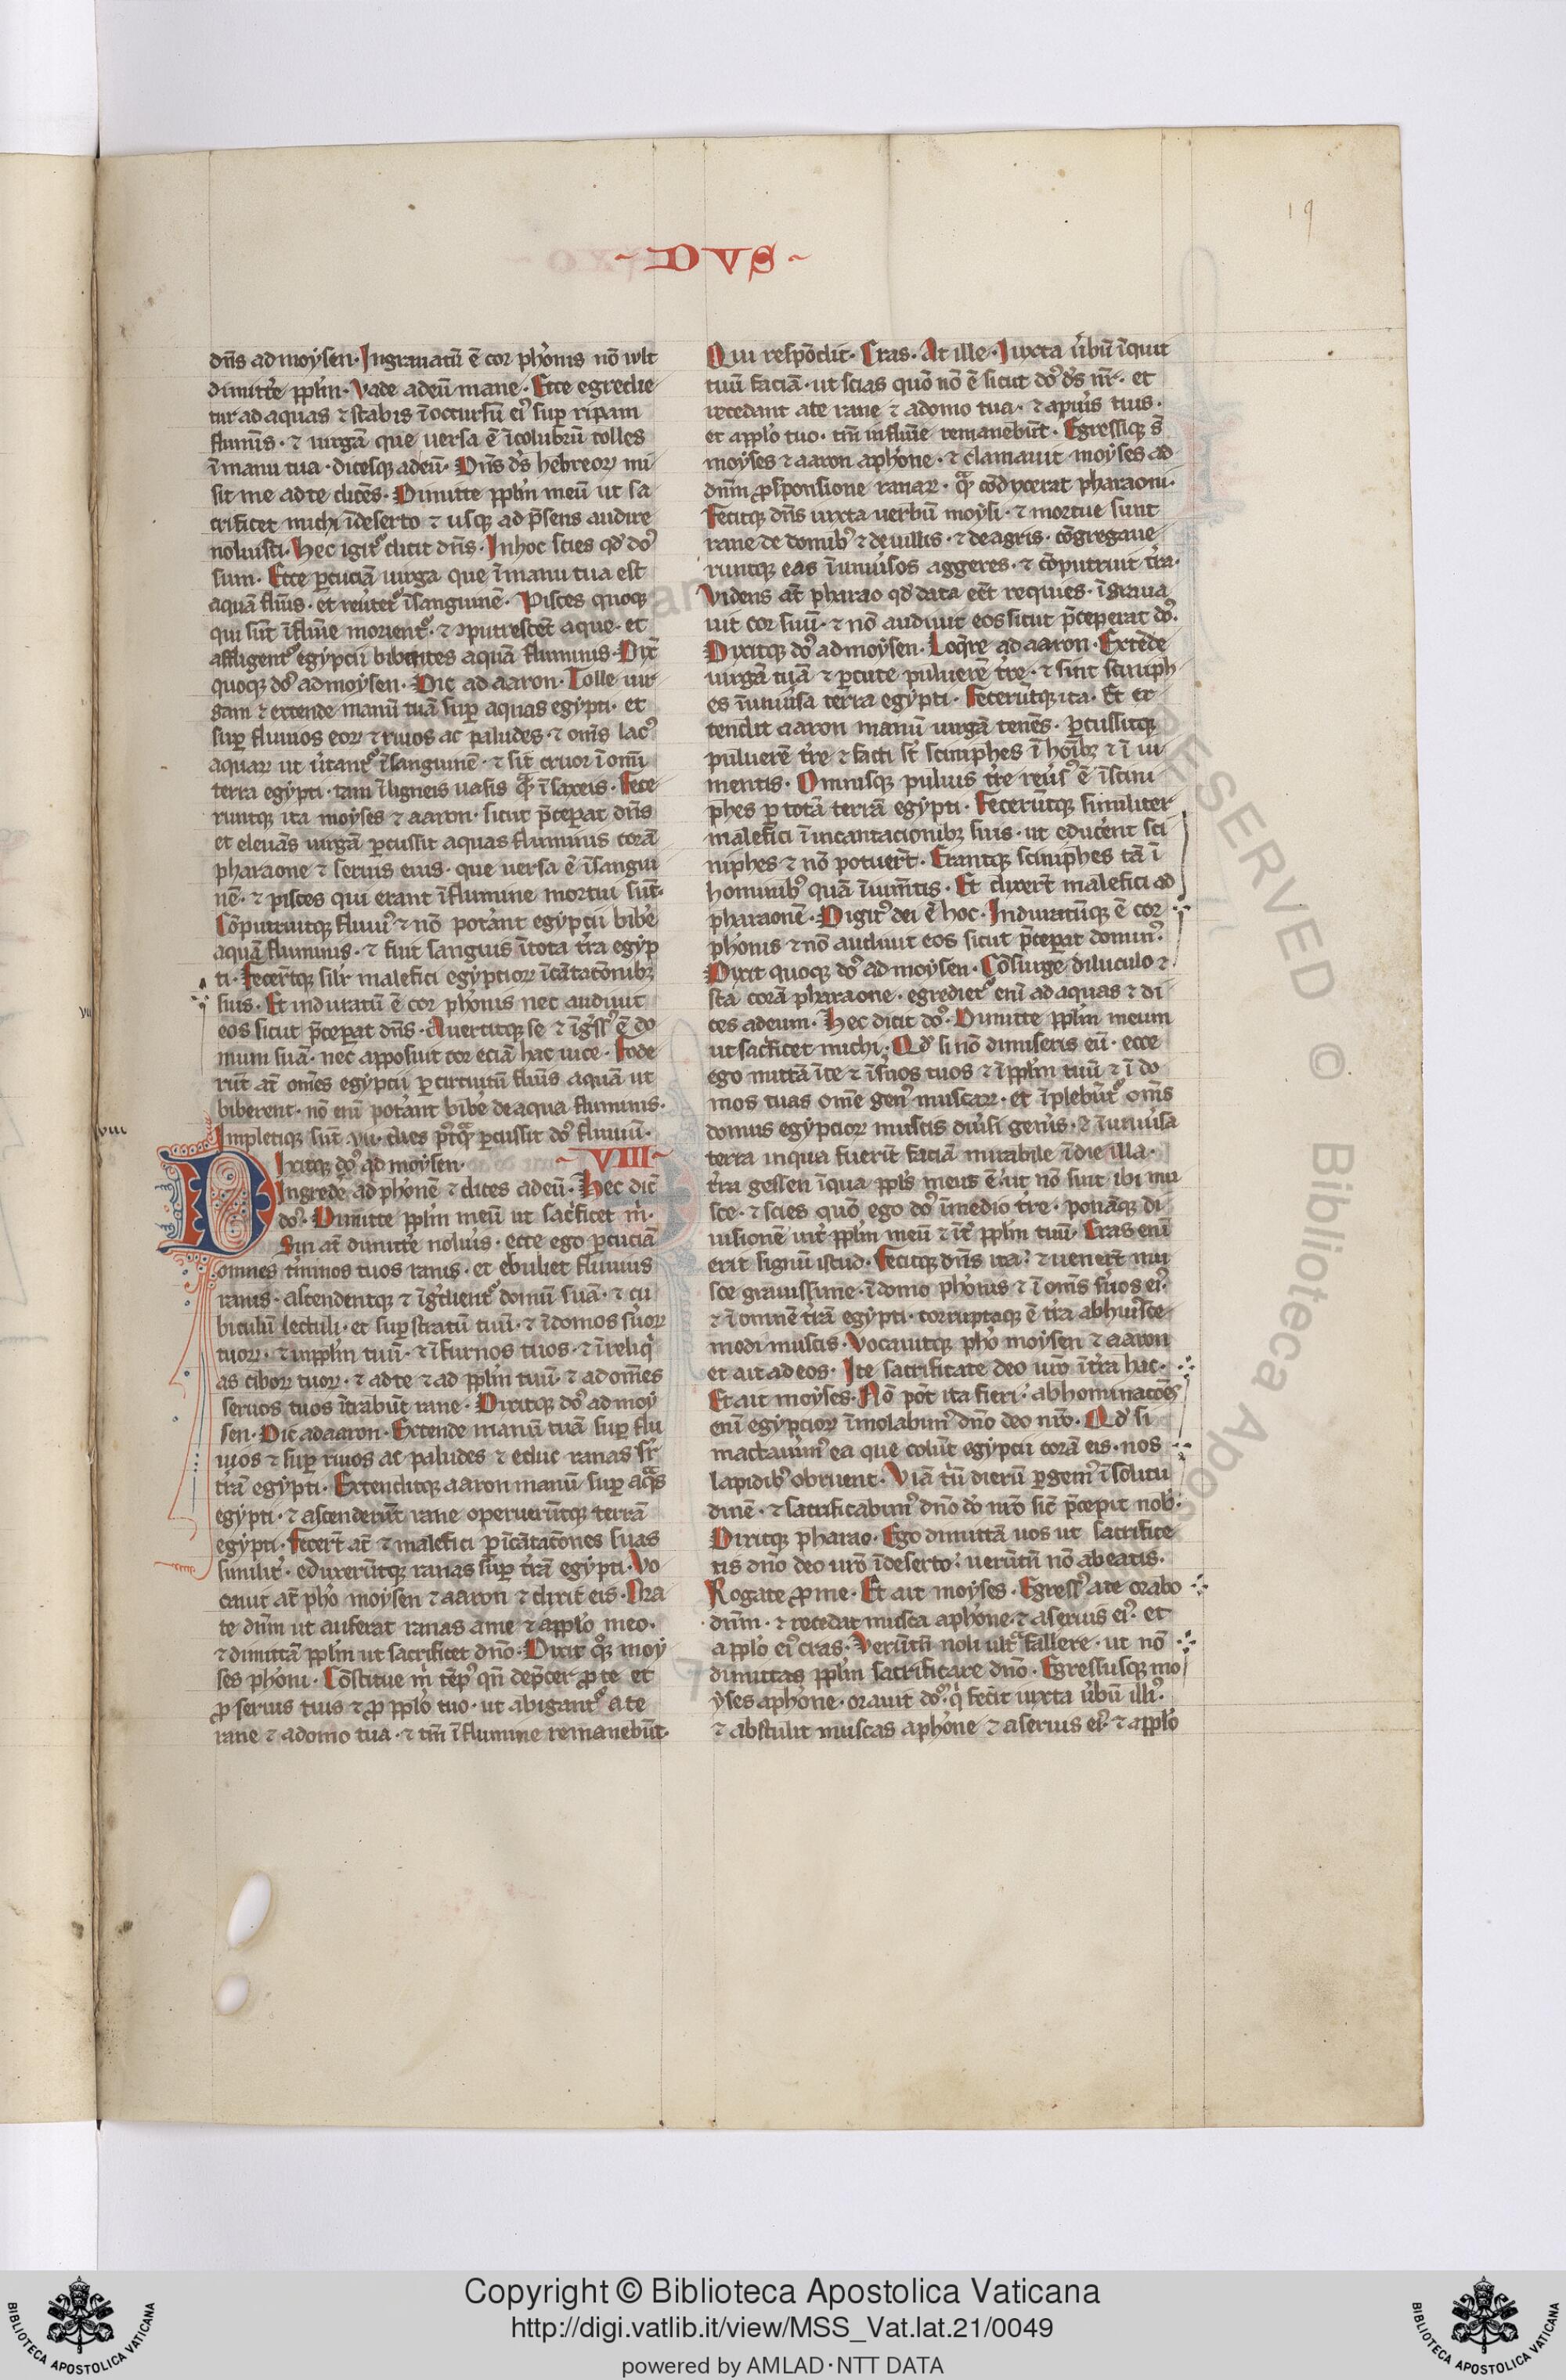 19
~ DVS ~
dn̄s ad moysen · Ingrauatū ē cor ph̓onis nō wlt
dimitt̓e pp̄lm · Vade ad eū mane · Ecce egredie
tur ad aquas ⁊ stabis ī occursū ei᷒ sup̱ ripam
flumīs · ⁊ uirgā que uersa ē ī colubrū tolles
ī manu tua · dicesq̨ ad eū · Dn̄s ds̓ hebreoꝝ mi
sit me ad te dicēs · Dimitte pp̄lm meū ut sa
crificet michi ī deserto ⁊ usq̨ ad p̄sens audire
noluisti · Hec igit᷑ dicit dn̄s · In hoc scies qd̓ do᷒
sum · Ecce ꝑcuciā uirga que ī manu tua est
aquā flūīs · et reu̓tet᷑ ī sanguinē · Pisces quoq̨
qui sūt ī flūīe morient᷑ · ⁊ ꝯputrescēt aque · et
affligent᷑ egyptii bibentes aquā fluminis · Dix̄
quoq̨ do᷒ ad moysen · Dic ad aaron · Tolle uir
gam ⁊ extende manū tuā sup̱ aquas egypti · et
sup̱ fluuios eoꝝ ⁊ riuos ac paludes · ⁊ om̄s lac᷒
aquaꝝ ut u̓tant᷑ ī sanguinē · ⁊ sit cruor ī omī
terra egypti · tam ī ligneis uasis qᷓ ī saxeis · Fece
runtq̨ ita moyses ⁊ aaron · sicut p̄cep̱at dn̄s
et eleuās uirgā ꝑcussit aquas fluminis corā
pharaone ⁊ seruis eius · que uersa ē ī sangui
nē · ⁊ pisces qui erant ī flumine mortui sūt ·
Cōputruitq̨ fluui᷒ ⁊ nō pot̓ant egyptii bib̓e
aquā fluminis · ⁊ fuit sanguis ī tota tr̓a egyp
ti · Fecer̄tq̨ silr̓ malefici egyptioꝝ īcātacōnibꝫ
suis · Et induratū ē cor ph̓onis nec audiuit
eos sicut p̄cep̱at dn̄s · Auertitq̨ se ⁊ īgr̓ss᷒ ē do
mum suā · nec apposuit cor eciā hac uice · Fode
rūt at̄ om̄es egyptii ꝑ circuitū flūīs aquā ut
biberent · nō enī pot̓ant bib̓e de aqua fluminis ·
Impletiq̨ sūt · vii · dies p̓tqᷓ ꝑcussit do᷒ fluuiū ·
viii
Dixitq̨ do᷒ ad moysen · ~ VIII ~
Ingred̓e ad ph̓onē ⁊ dices ad eū · Hec dic̄
do᷒ · Dimitte pp̄lm meū ut sac̓ficet m̓ ·
Sin at̄ dimitt̓e nolu̓is · ecce ego ꝑcuciā
omnes t̓minos tuos ranis · et ebuliet fluuius
ranis · ascendentq̨ ⁊ īg̓dient᷑ domū tuā · ⁊ cu
biculū lectuli · et sup̱ stratū tuū · ⁊ ī domos su̓oꝝ
tuoꝝ · ⁊ in pp̄lm tuū · ⁊ ī furnos tuos · ⁊ ī reliq̓
as ciboꝝ tuoꝝ · ⁊ ad te ⁊ ad pp̄lm tuū · ⁊ ad om̄es
seruos tuos ītrabūt rane · Dixitq̨ do᷒ ad moy
sen · Dic ad aaron · Extende manū tuā sup̱ flu
uios ⁊ sup̱ riuos ac paludes ⁊ educ ranas sr̓
tr̓ā egypti · Extenditq̨ aaron manū sup̱ aqᷓs
egypti · ⁊ ascenderūt rane operuerūtq̨ terrā
egypti · Fecer̄t at̄ ⁊ malefici ꝑ īcātacōnes suas
similit̓ · eduxerūtq̨ ranas sup̱ tr̓ā egypti · Vo
cauit at̄ ph̓o moysen ⁊ aaron ⁊ dixit eis · Ora
te dn̄m ut auferat ranas a me ⁊ a pp̄lo meo ·
⁊ dimittā pp̄lm ut sacrificet dn̄o · Dixit qͦꝫ moy
ses ph̓oni · Cōstitue m̓ tēp᷒ qn̄ dep̄cer ꝓ te et
ꝓ seruis tuis ⁊ ꝓ pp̄lo tuo · ut abigant᷑ a te
rane ⁊ a domo tua · ⁊ tm̄ ī flumine remanebūt ·
Qui respōdit · Cras · At ille · Iuxta u̓bū īquit
tuū faciā · ut scias quō nō ē sicut do᷒ ds̓ nr̄ · et
recedant a te rane ⁊ a domo tua · ⁊ a pu̓is tuis ·
et a pp̄lo tuo · tm̄ in flūīe remanebūt · Egressiq̨ s̄
moyses ⁊ aaron a ph̓one · ⁊ clamauit moyses ad
dn̄m ꝓ sponsione ranaꝝ · qᷓ cōdixerat pharaoni ·
Fecitq̨ dn̄s iuxta uerbū moysi · ⁊ mortue sunt
rane de domib᷒ ⁊ de uillis · ⁊ de agris · cōgregaue
runtq̨ eas ī īmu̓sos aggeres · ⁊ cōputruit tr̓a ·
Videns at̄ pharao qd̓ data eēt requies · īgraua
uit cor suū · ⁊ nō audiuit eos sicut p̄ceperat do᷒ ·
Dixitq̨ do᷒ ad moysen · Loq̓re ad aaron · Extēde
uirgā tuā ⁊ ꝑcute puluerē tr̓e · ⁊ sint sciniph
es ī uniu̓sa terra egypti · Fecerūtq̨ ita · Et ex
tendit aaron manū uirgā tenēs · ꝑcussitq̨
puluerē tr̓e ⁊ facti st̄ sciniphes ī hoībꝫ ⁊ ī iu
mentis · Omnisq̨ puluis tr̓e reu̓s᷒ ē ī scini
phes ꝑ totā terrā egypti · Fecerūtq̨ similiter
malefici ī incantacionibꝫ suis · ut educ̓ent sci
niphes ⁊ nō potuer̄t · Erantq̨ sciniphes tā ī
hominib᷒ quā ī iumītis · Et dixer̄t malefici ad
pharaonē · Digit᷒ dei ē hoc · Induratūq̨ ē cor
ph̓onis ⁊ nō audiuit eos sicut p̄cep̱at domin᷒ ·
Dixit quoq̨ do᷒ ad moysen · Cōsurge diluculo ⁊
sta corā pharaone · egrediet᷑ enī ad aquas ⁊ di
ces ad eum · Hec dicit do᷒ · Dimitte pp̄lm meum
ut sac̓ficet michi · Qd̓ si nō dimiseris eū · ecce
ego mittā ī te ⁊ ī su̓os tuos ⁊ ī pp̄lm tuū ⁊ ī do
mos tuas om̄e gen᷒ muscaꝝ · et īplebūt᷑ om̄s
domus egyptioꝝ muscis diu̓si gen̓is · ⁊ ī uniu̓sa
terra in qua fuerīt faciā mirabile ī die illa ·
tr̓a gessen ī qua pp̄ls meus ē · ut nō sint ibi mu
sce · ⁊ scies quō ego do᷒ ī medio tr̓e · ponāq̨ di
uisionē int̓ pp̄lm meū ⁊ īt̓ pp̄lm tuū · Cras enī
erit signū istud · Fecitq̨ dn̄s ita · ⁊ uener̄t mu
sce grauissime · ī domo ph̓onis ⁊ ī om̄s su̓os ei᷒ ·
⁊ ī omnē tr̓ā egypti · corruptaq̨ ē tr̓a ab hui᷒sce
modi muscis · Vocauitq̨ ph̓o moysen ⁊ aaron
et ait ad eos · Ite sacrificate deo ur̄o ī tr̓a hac ·
Et ait moyses · Nō pōt ita fieri · abhominacōēs
enī egyptioꝝ īmolabim᷒ dn̄o deo nr̄o · Qd̓ si
mactauim᷒ ea que colūt egyptii corā eis · nos
lapidib᷒ obruent · Viā t̓ū dierū ꝑgem᷒ ī solitu
dinē · ⁊ sacrificabim᷒ dn̄o do̓ nr̄o sic̄ p̄cepit nob̓ ·
Dixitq̨ pharao · Ego dimittā uos ut sacrifice
tis dn̄o deo ur̄o ī deserto · uerūtn̄ nō abeatis ·
Rogate ꝓ me · Et ait moyses · Egress᷒ a te orabo
dn̄m · ⁊ recedat musca a ph̓one · ⁊ a seruis ei᷒ · et
a pp̄lo ei᷒ cras · Verūtn̄ noli ultᷓ fallere · ut nō
dimittas pp̄lm sacrificare dn̄o · Egressusq̨ mo
yses a ph̓one · orauit do᷒ · q̓ fecit iuxta u̓bū illi᷒ ·
⁊ abstulit muscas a ph̓one ⁊ a seruis ei᷒ · ⁊ a pp̄lo
Copyright © Biblioteca Apostolica Vaticana
http://digi.vatlib.it/view/MSS_Vat.lat.21/0049
powered by AMLAD · NTT DATA
BIBLIOTECA APOSTOLICA VATICANA
BIBLIOTECA APOSTOLICA VATICANA